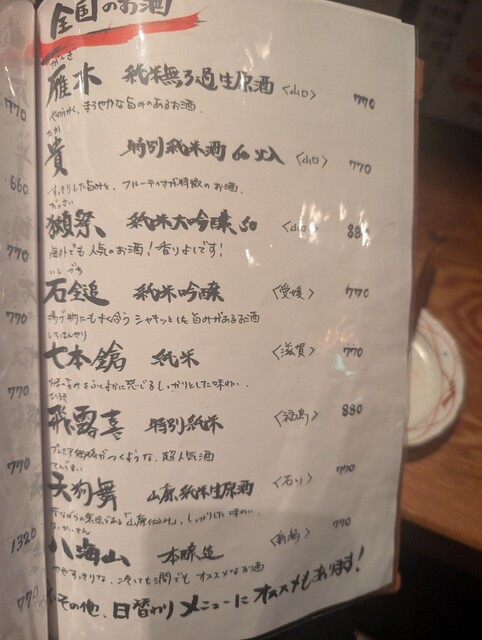 全国のお酒
がんぎ
雁木 純米無ろ過生原酒 〈山口〉 770
やわらかく、まろやかな旨みのあるお酒。
たか
貴 特別純米酒60火入 〈山口〉 770
すっきりした旨みと、フルーティさが特徴のお酒。
だっさい
獺祭 純米大吟醸50 〈山口〉 880
海外でも人気のお酒!香りよしです!
いしづち
石鎚 純米吟醸 〈愛媛〉 770
揚げ物にもよく合うシャキッとした旨みがあるお酒
しちほんやり
七本鎗 純米 〈滋賀〉 770
しっかりとした味わい。
ひろき
飛露喜 特別純米 〈福島〉 880
プレミア価格がつくような、超人気酒
てんぐまい
天狗舞 山廃純米生原酒 〈石川〉 770
「山廃仕込み」。しっかりした味わい。
はっかいさん
八海山 本醸造 〈新潟〉 770
ややすっきりな、冷でも燗でもオススメなお酒
その他、日替わりメニューにオススメもあります!
770
660
770
770
770
770
1320
770